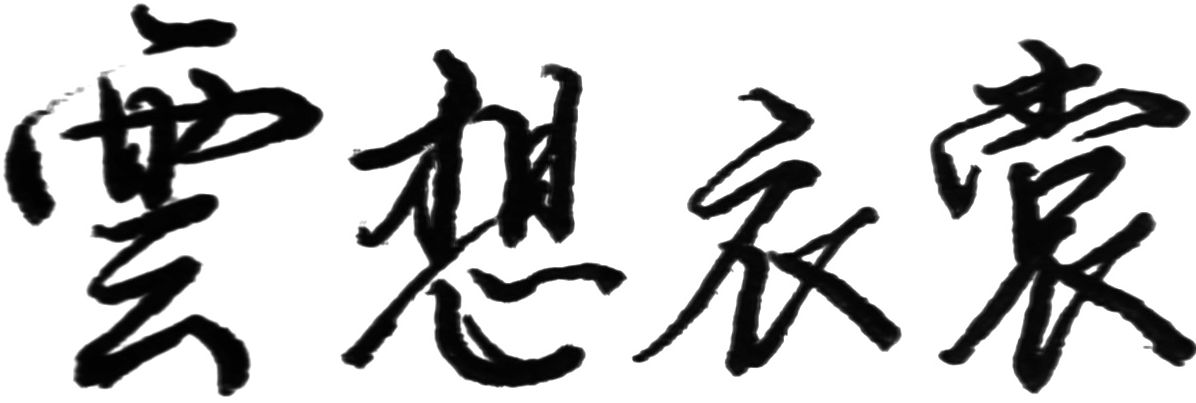 雲想衣裳